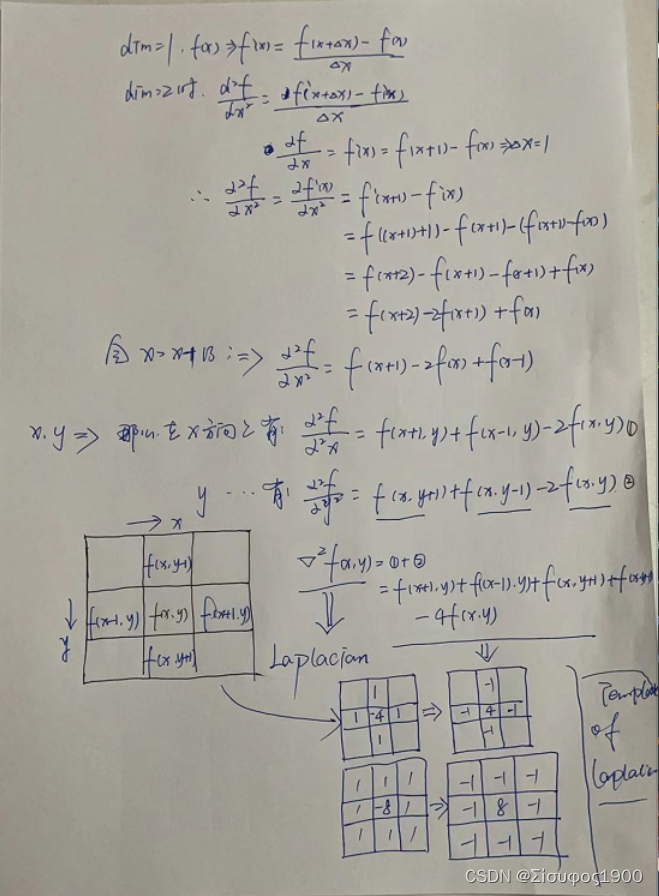 dim=1. f(x)⇒f'(x)= f(x+Δx)-f(x) / Δx
dim=2时. ∂²f/∂x² = f'(x+Δx)-f'(x) / Δx
∂f/∂x = f'(x) = f(x+1)-f(x) ⇒Δx=1
∴ ∂²f/∂x² = ∂f'(x)/∂x² = f'(x+1)-f'(x)
= f((x+1)+1)-f(x+1)-(f(x+1)-f(x))
= f(x+2)-f(x+1)-f(x+1)+f(x)
= f(x+2)-2f(x+1)+f(x)
⇒ ∂²f/∂x² = f(x+1)-2f(x)+f(x-1)
x.y ⇒ 那么在x方向上有: ∂²f/∂²x = f(x+1,y)+f(x-1,y)-2f(x,y) ①
y ··· 有: ∂²f/∂y² = f(x,y+1)+f(x,y-1)-2f(x,y) ②
→ x
↓ y
f(x,y-1)
f(x-1,y) f(x,y) f(x+1,y)
f(x,y+1)
∇²f(x,y)=①+②
= f(x+1,y)+f((x-1),y)+f(x,y+1)+f(x,y-1)
-4f(x,y)
⇓ ⇓
Laplacian
1
1 -4 1
1
⇒
-1
-1 4 -1
-1
1 1 1
1 -8 1
1 1 1
⇒
-1 -1 -1
-1 8 -1
-1 -1 -1
Template
of
Laplacian
CSDN @Σίσυφος1900